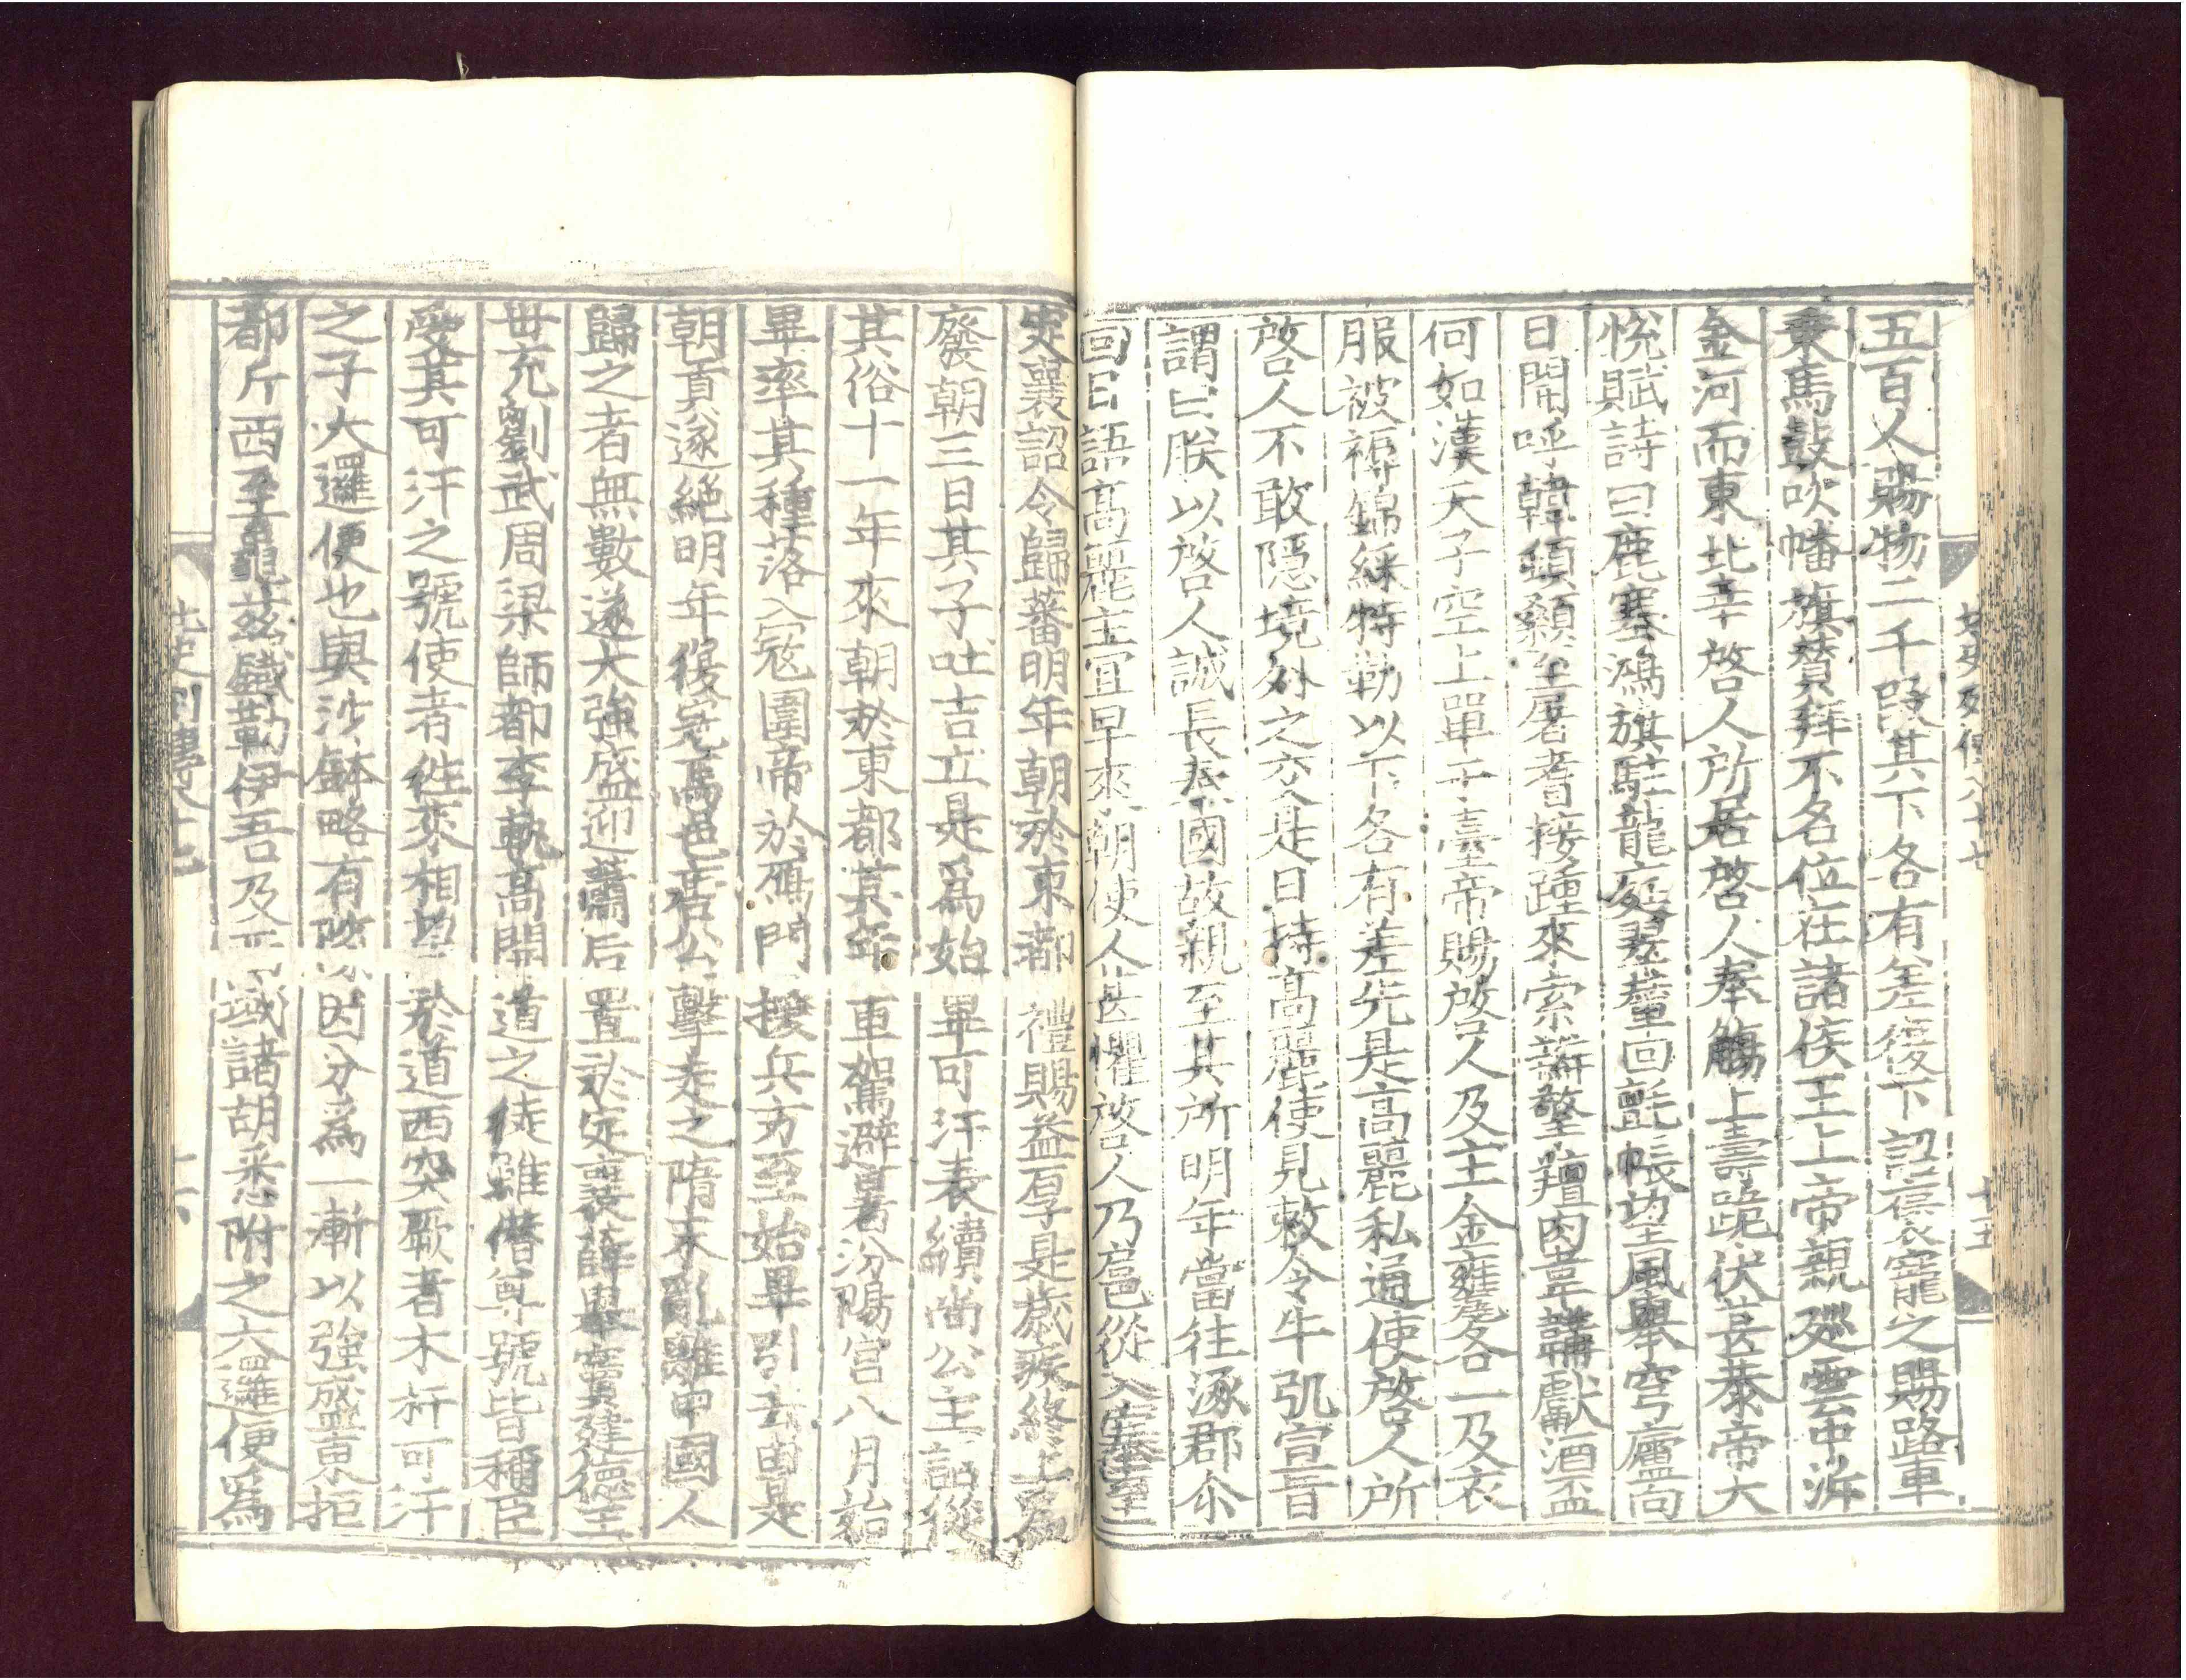 五百人賜物二千段其下各有差復下詔褒寵之賜路車
乘馬鼓吹幡旗贊拜不名位在諸侯王上帝親廵雲中泝
金河而東北幸啓人所居啓人奉觴上壽跪伏甚恭帝大
恱賦詩曰鹿塞鴻旗駐龍庭翠輦回氈帳望風舉穹廬向
日開呼韓頓顙至屠耆接踵來索辮擎羶肉韋韝獻酒盃
何如漢天子空上單于臺帝賜啓人及主金甕各一及衣
服被褥錦綵特勒以下各有差先是高麗私通使啓人所
啓人不敢隱境外之交是日持高麗使見敕令牛弘宣旨
謂曰朕以啓人誠長奉國故親至其所明年當往涿郡尒
回日語高麗主宜早來朝使人甚懼啓人乃扈從入塞至
北史列傳八十七
十五
定襄詔令歸蕃明年朝於東都禮賜益厚是歳疾終上爲
廢朝三日其子吐吉立是爲始畢可汗表續尚公主詔從
其俗十一年來朝於東都其年車駕避暑汾陽宮八月始
畢率其種落入寇圍帝於鴈門援兵方至始畢引去由是
朝貢遂絶明年復寇馬邑唐公擊走之隋末亂離中國人
歸之者無數遂大強盛迎蕭后置於定襄薛舉竇建德王
世充劉武周梁師都李軌高開道之徒雖僣尊號皆稱臣
受其可汗之號使者徃來相望於道西突厥者木杆可汗
之子大邏便也與沙鉢略有隙因分爲二漸以強盛東拒
都斤西至龜茲鐵勒伊吾及西域諸胡悉附之大邏便爲
北史列傳八十七
十六